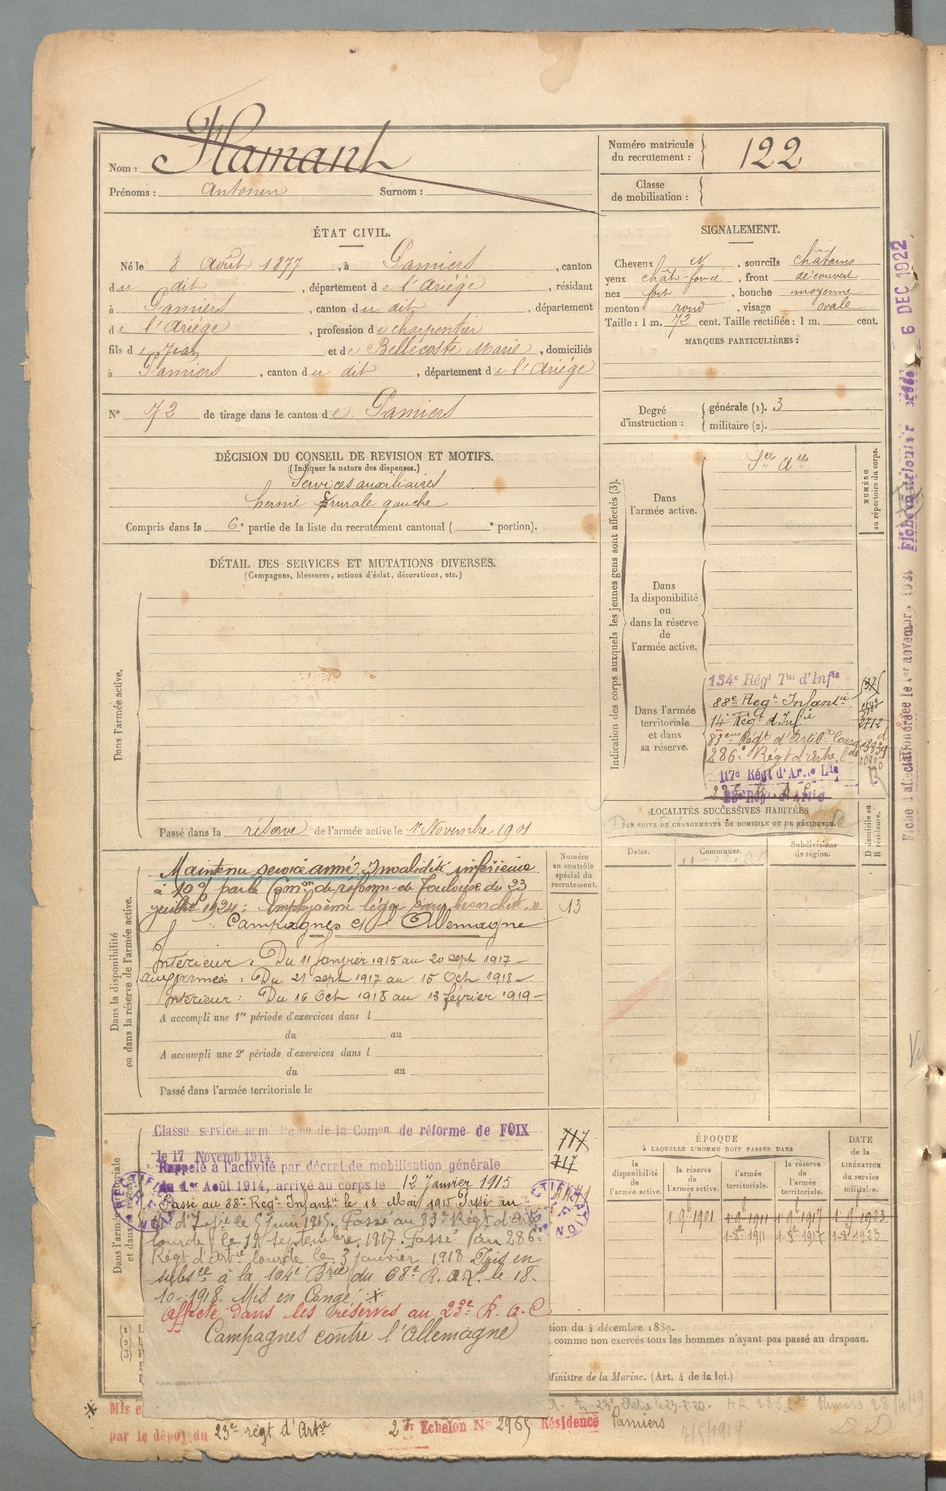 Nom : Flamant
Prénoms : Antonin Surnom :
Numéro matricule du recrutement : 122
Classe de mobilisation :
ÉTAT CIVIL.
Né le 8 Août 1877, à Pamiers, canton
du dit, département de l'Ariège, résidant
à Pamiers, canton du dit, département
de l'Ariège, profession de charpentier
fils de Jean et de Bellecoste Marie, domiciliés
à Pamiers, canton du dit, département de l'Ariège
N° 72 de tirage dans le canton de Pamiers
SIGNALEMENT.
Cheveux N, sourcils châtains
yeux chât-foncé, front découvert
nez fort, bouche moyenne
menton rond, visage ovale
Taille : 1 m. 72 cent. Taille rectifiée : 1 m. cent.
MARQUES PARTICULIÈRES :
Degré d'instruction : générale (1). 3
militaire (2).
DÉCISION DU CONSEIL DE REVISION ET MOTIFS.
(Indiquer la nature des dispenses.)
Services auxiliaires
hernie crurale gauche
Compris dans la 6e partie de la liste du recrutement cantonal ( e portion).
DÉTAIL DES SERVICES ET MUTATIONS DIVERSES.
(Campagnes, blessures, actions d'éclat, décorations, etc.)
Dans l'armée active.
Passé dans la réserve de l'armée active le 1er Novembre 1901
Indication des corps auxquels les jeunes gens sont affectés (3).
NUMÉRO au répertoire du corps.
Dans l'armée active.
Sces Ares
Dans la disponibilité ou dans la réserve de l'armée active.
Dans l'armée territoriale et dans sa réserve.
134e Régt Tal d'Infie
88e Regt Infantie
14e Regt d'Infie
286e Régt d'Artie
117e Régt d'Arie Lde
LOCALITÉS SUCCESSIVES HABITÉES
PAR SUITE DE CHANGEMENTS DE DOMICILE OU DE RÉSIDENCE.
Dates. Communes. Subdivisions de région. D domicile ou R résidence.
Dans la disponibilité ou dans la réserve de l'armée active.
Numéro au contrôle spécial du recrutement.
13
Maintenu service armé Invalidité inférieure
à 10% par la Comon de réforme de Toulouse du 23
juillet 1924 : emphysème léger
Campagnes Cl Allemagne
Intérieur : Du 11 Janvier 1915 au 20 sept 1917 -
aux armées : Du 21 sept 1917 au 15 Oct 1918 -
Intérieur : Du 16 Oct 1918 au 18 février 1919 -
A accompli une 1re période d'exercices dans l
du au
A accompli une 2e période d'exercices dans l
du au
Passé dans l'armée territoriale le
Classe service armé de la Comon de réforme de FOIX
le 17 Novemb 1914
Rappelé à l'activité par décret de mobilisation générale
du 1er Août 1914, arrivé au corps le 12 Janvier 1915
Passé au 88e Regt Infantie le 18 Mai 1915 Passé au
14e d'Infie le 5 Juin 1915. Passé au 83e Régt d'Artie
lourde le 19 septembre 1917. Passé au 286e
Régt d'Artie lourde le 3 janvier 1918 Pris en
subsce à la 104e Brie du 68e R.A.L. le 18-
10-1918. Mis en Congé
Affecté dans les réserves au 23e R.A.C.
Campagnes contre l'Allemagne
717
717
ÉPOQUE
À LAQUELLE L'HOMME DOIT PASSER DANS
la disponibilité de l'armée active. la réserve de l'armée active. l'armée territoriale. la réserve de l'armée territoriale.
DATE DE LA LIBÉRATION DU SERVICE MILITAIRE.
1-9-1901 1-9-1911 1-9-1917 1-9-1923
1-8-1911 1-8-1917 1-8-1923
tion du 4 décembre 1889.
comme non exercés tous les hommes n'ayant pas passé au drapeau.
Ministre de la Marine. (Art. 4 de la loi.)
Mis e
par le dépôt du 23e régt d'Artie 2e Echelon N° 2965 Résidence Pamiers
7/5/1919
6 DEC 1922